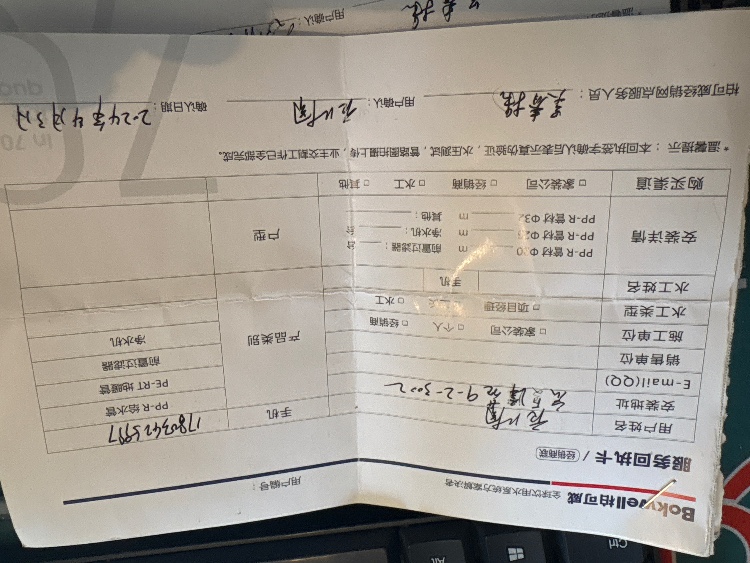 Bokwell柏可威 全球饮用水系统方案解决者
用户编号：
服务回执卡 / 经销商联
用户姓名
手机 17803425997
安装地址 9-2-3002
E-mail(QQ)
销售单位
产品类别 PP-R 给水管
PE-RT 地暖管
前置过滤器
净水机
施工单位 □ 家装公司 □ 个人 □ 经销商
水工类型 □ 项目经理 □ 水工
水工姓名 手机
安装详情 PP-R 管材 Φ20 m 前置过滤器： 台
PP-R 管材 Φ25 m 净水机： 台
PP-R 管材 Φ32 m 其他：
户型
购买渠道 □ 家装公司 □ 经销商 □ 水工 □ 其他
*温馨提示：本回执签字确认后表示真伪验证，水压测试，管路图拍摄上传，业主交割工作已全部完成。
柏可威经销网点服务人员：
用户确认：
确认日期：2024年4月3日
用户确认：
Ctrl
Alt
in 70